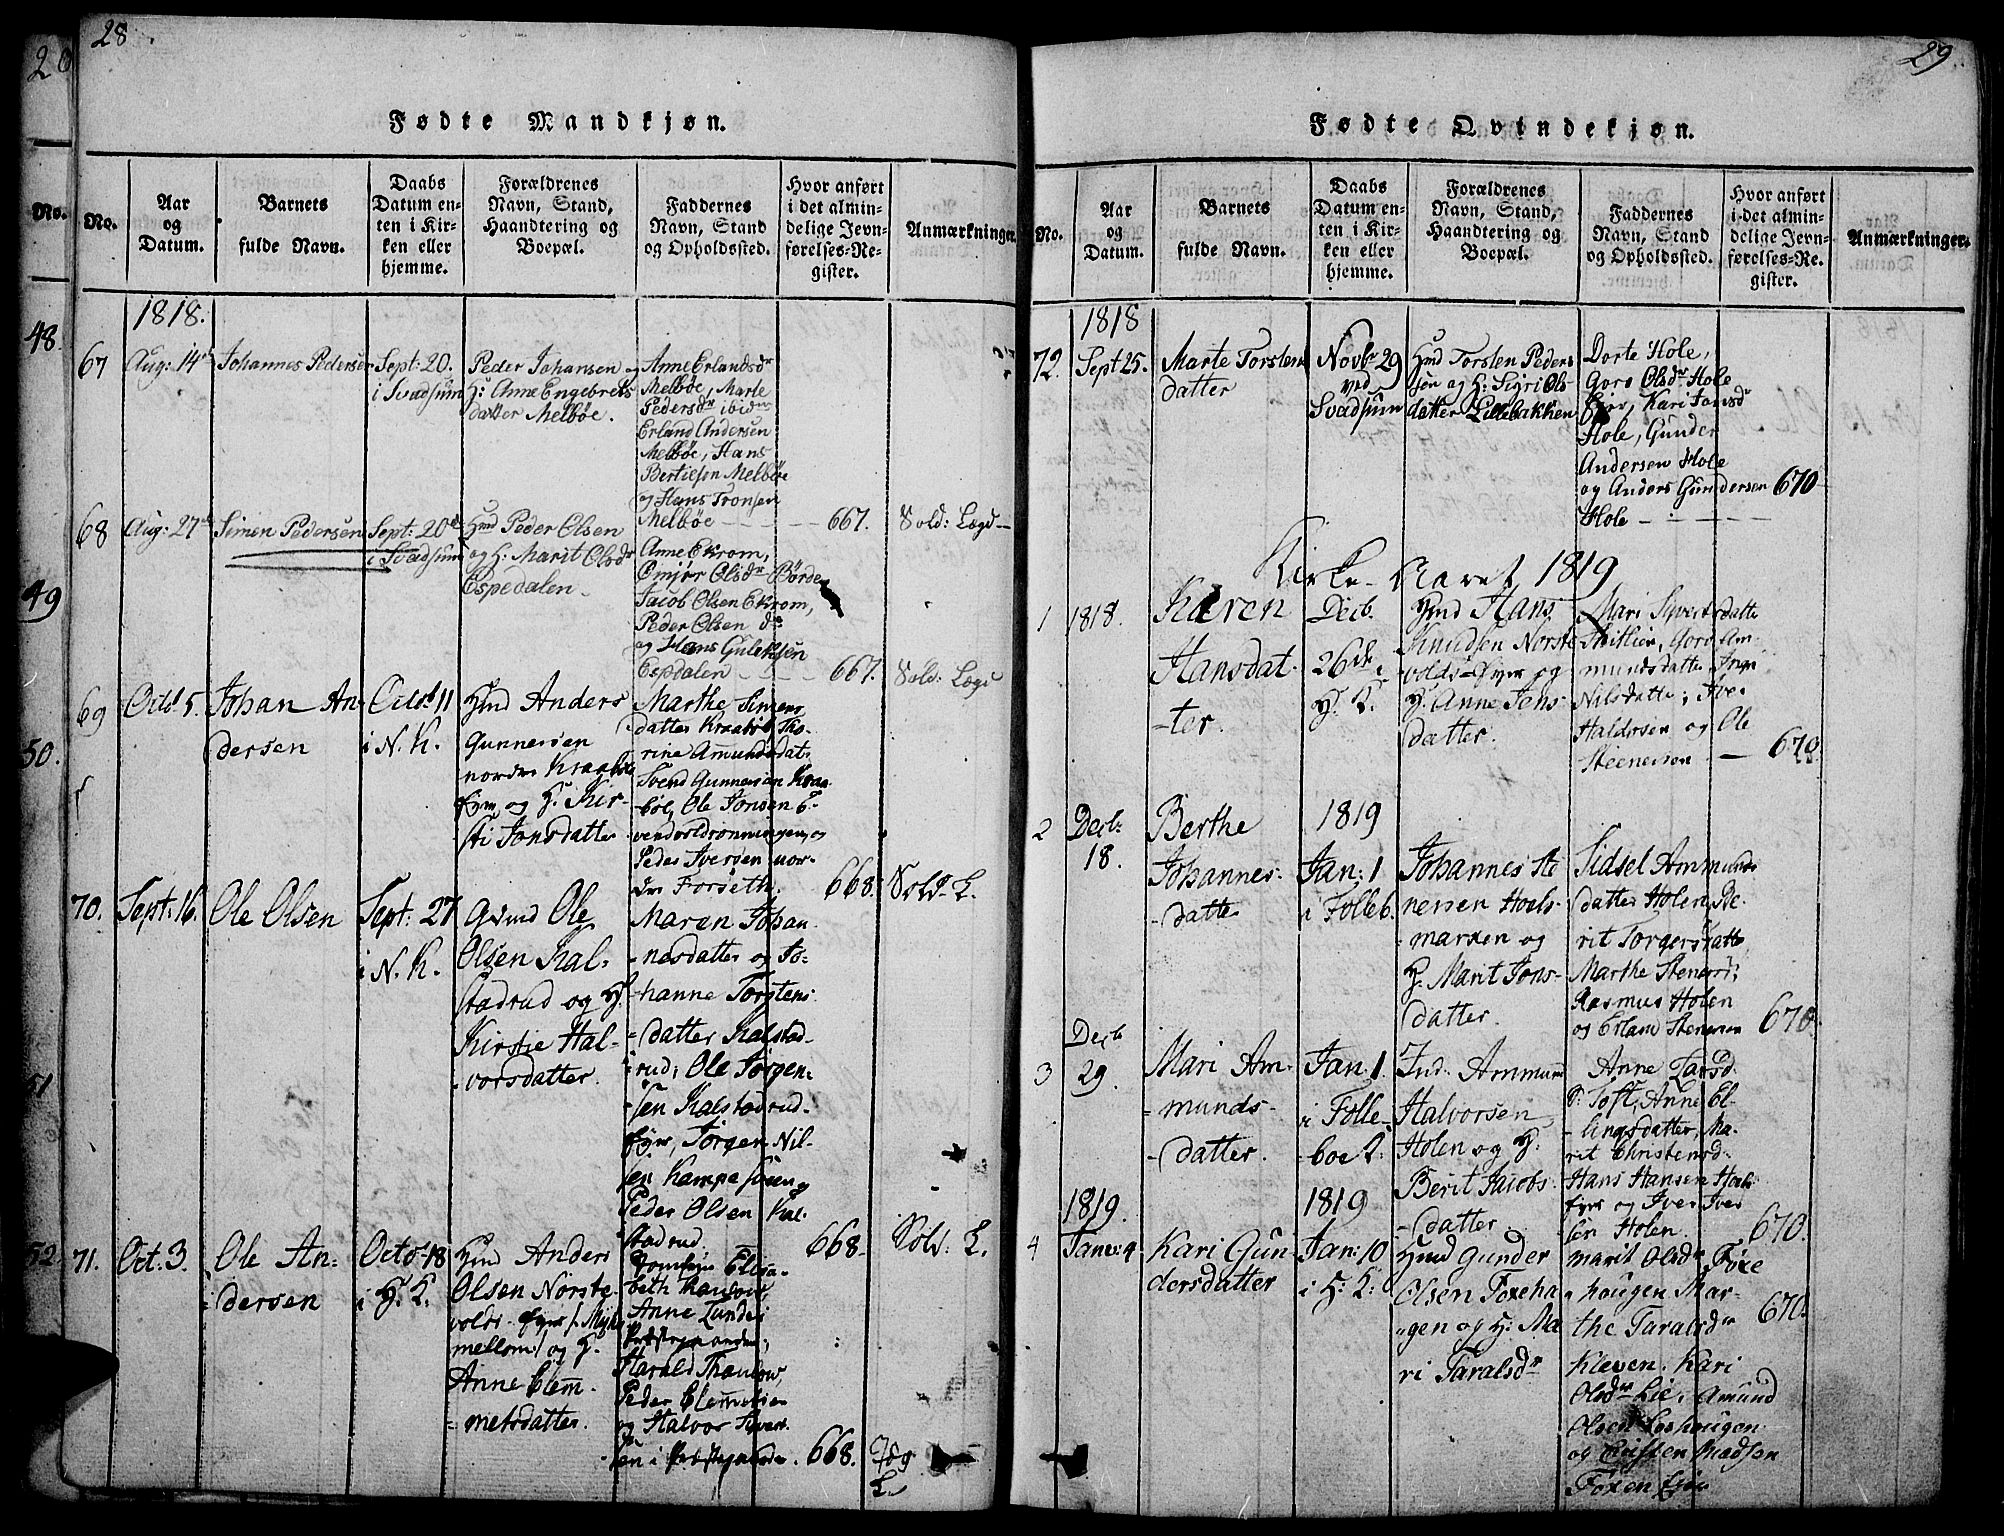 28
Fødte Mandkjøn.
No.
Aar og Datum.
Barnets fulde Navn.
Daabs Datum enten i Kirken eller hjemme.
Forældrenes Navn, Stand, Haandtering og Boepæl.
Faddernes Navn, Stand og Opholdssted.
Hvor anført i det almindelige Jevnførelses-Register.
Anmærkninger.
1818.
67
Aug: 14de
Johannes Pedersen
Sept: 20.
i Svadsum
Peder Johansen og
H: Anne Engebrets
datter Melbøe.
Anne Erlandsdr
Melbøe, Marte
Pedersdr ibidm
Erland Andersen
Melbøe, Hans
Bertelsen Melbøe
og Hans Tronsen
Melbøe
667.
Sold: Lægd
68
Aug: 27de
Simen Pedersen
Sept: 20de
i Svadsum
Hmd Peder Olsen
og H: Marit Olsdr
Espedalen
Anne Ekrom,
Jacob Olsen Ekrom,
Peder Olsen do
og Hans Guleksen
Espdalen
667.
Sold: Lægd
69
Octb. 5.
Johan An-
dersen
Octob. 11
i N. K.
Hmd Anders
Gunnersen
nordre Kraabøl
Eyer og H. Kir-
sti Jonsdatter
Marthe Simens
datter Kraabøl Tho-
rine Amundsdat:
Svend Gunnersen Kraa
bøl, Ole Jonsen
Peder Iversen nor-
dre Forseth.
668.
Sold. L.
70.
Sept: 16.
Ole Olsen
Sept: 27
i N. K.
Gsmd Ole
Olsen Kal-
stadrud og H.
Kirstie Hal-
vorsdatter.
Maren Johan-
nesdatter og Jo-
hanne Torstens
datter Kalstad-
rud; Ole Jørgen-
sen Kalstadrud-
eyer, Jørgen Nil-
sen Kampesveen og
Peder Olsen Kal-
stadrud.
668.
Sold. L.
71.
Oct: 3.
Ole An-
dersen
Octob. 18
i H. K.
Hmd Anders
Olsen Nørste-
volds-eyer
mellom/ og H.
Anne Clem-
metsdatter.
Jomfrue Elisa-
beth Thaulow,
Anne Lunde i
Præstegaarden,
Harald Thaulow,
Peder Clemmetsen
og Halvor Syvert
sen i Præstegaarden.
668.
L.
29
Fødte Qvindekjøn.
No.
Aar og Datum.
Barnets fulde Navn.
Daabs Datum enten i Kirken eller hjemme.
Forældrenes Navn, Stand, Haandtering og Boepæl.
Faddernes Navn, Stand og Opholdssted.
Hvor anført i det almindelige Jevnførelses-Register.
Anmærkninger.
1818
72.
Sept 25.
Marte Torstens
datter
Novbr 29
ved
Svadsum
Hmd Torsten Peder-
sen og H: Sigri Ols-
datter Lillebakken
Dorte Hole,
Goro Olsdr Hole
Eier, Kari Jonsdr
Hole, Gunder
Andersen Hole
og Anders Gundersen
Hole
670
Kirke-Aaret 1819
1
1818.
Karen
Hansdat-
ter.
Decb.
26de i
H. K.
Hmd Hans
Knudsen Nørste
volds-Eyer og
H. Anne Jens-
datter.
Mari Syvertsdatter
Goro Am-
mundsdatter Inge
Nilsdatter; Iver
Haldorsen og Ole
Steenersen
670.
2
Decb:
18.
Berthe
Johannes-
datter
1819
Jan: 1
i Folleb.
Johannes Ste
nersen Hoels-
marken og
H. Marit Jons-
datter.
Sidsel Ammunds
datter Holen Be-
rit Torgersdatter
Marthe Stenersd;
Rasmus Holen
og Erland Stenersen
670.
3
Decb
29.
Mari Am-
munds-
datter.
Jan: 1
i Folle-
boe K.
Ind. Ammund
Halvorsen
Holen og H.
Berit Jacobs-
datter.
Anne Larsd.
Toft, Anne El-
lingsdatter, Ma-
rit Christensd:
Hans Hansen Hoels-
eyer og Iver Iver
sen Holen.
670.
1819.
4
Janu: 4
Kari Gun
dersdatter
1819
Jan: 10
i H: K:
Hmd Gunder
Olsen Foxeha
gen og H: Ma
ri Taralsdr
Marit Olsdr Foxe
haugen Mar-
the Taralsdr
Kleven. Kari
Olsdr Lie, Amund
Olsen
og Christen Madsen
Foxen Eier
670.
20
No.
48.
49
50.
51
52